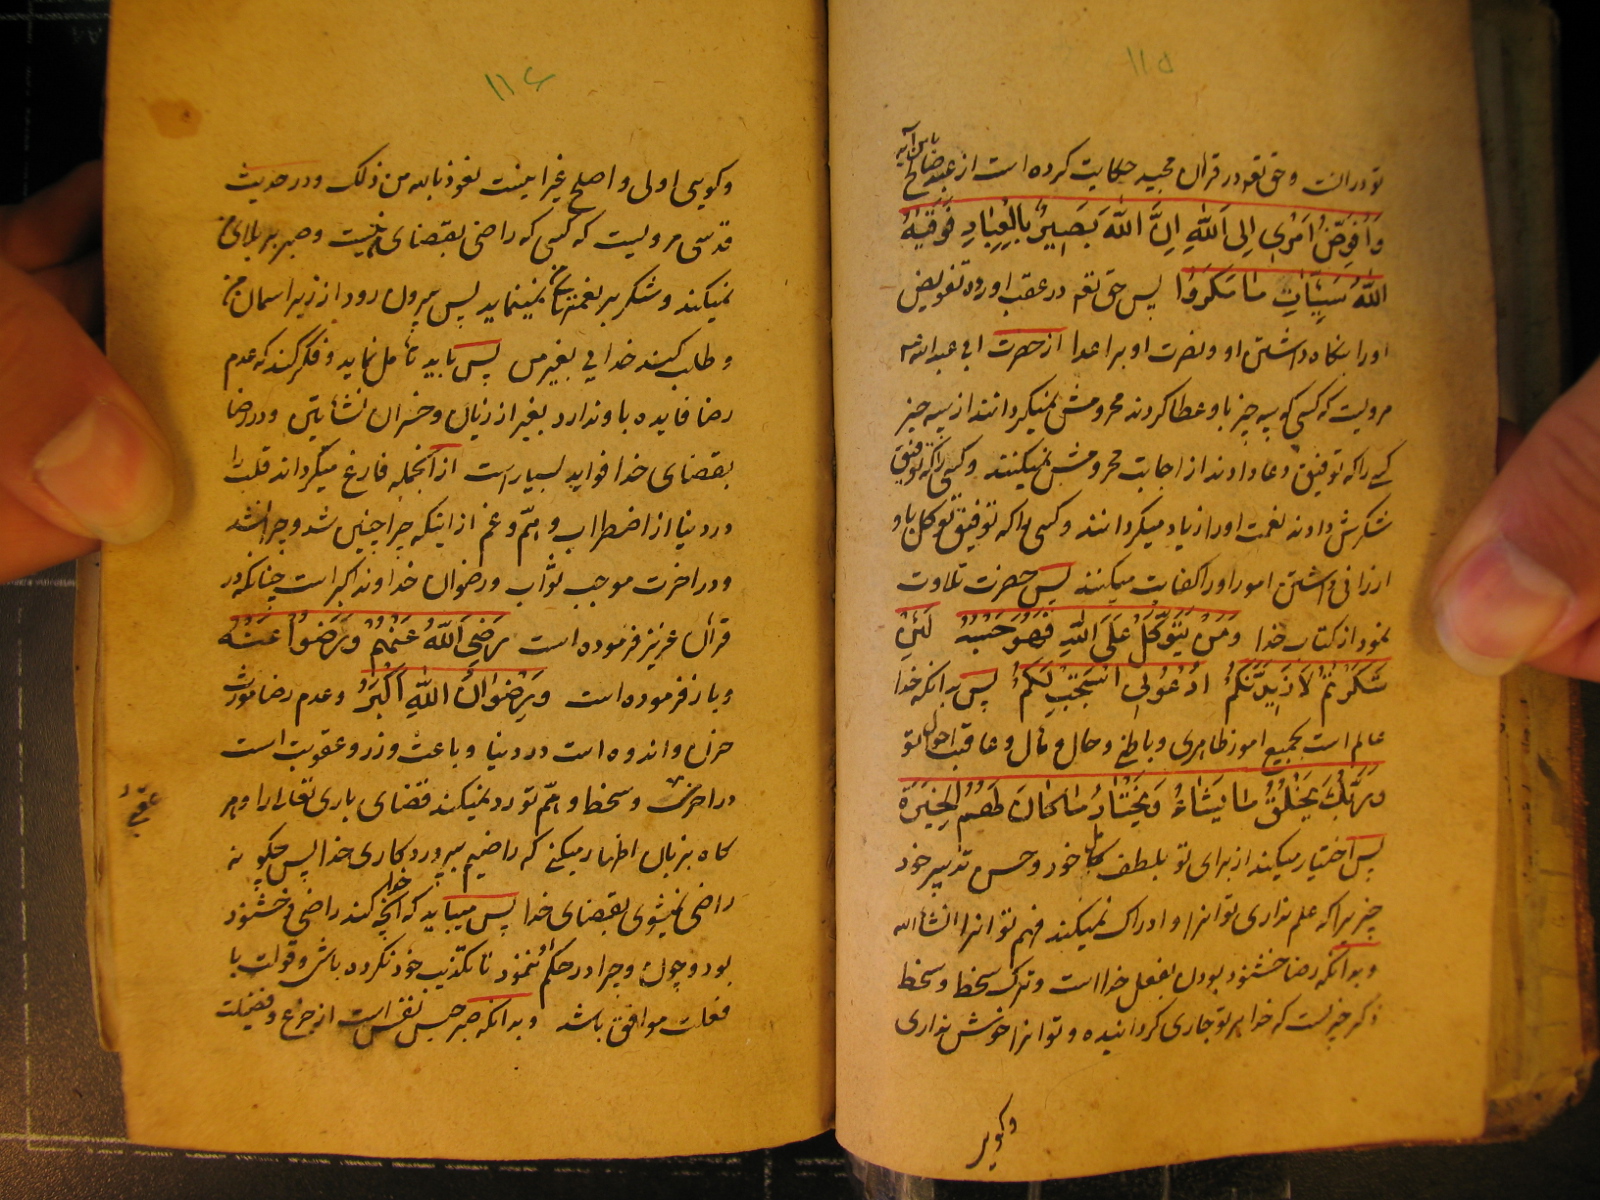 ۱۱۵
تو در انست و حق تعه در قران مجید حکایت کرده است از عبد صالح
باین آیه
وَاُفَوِّضُ اَمْرِی اِلَی اللّٰهِ اِنَّ اللّٰهَ بَصِیرٌ بِالْعِبَادِ فَوَقٰیهُ
اللّٰهُ سَیِّئَاتِ مَا مَکَرُوا پس حق تعه در عقب اورده تفویض
اورا بنکاه داشتن او و نصرت او بر اعدا از حضرت ابی عبدالله
مرویست که کسی که سه چیز باو عطا کردند محرومش نمیکردانند از سه چیز
کسی را که توفیق دعا دادند از اجابت محرومش نمیکنند و کسی را که توفیق
شکرش دادند نعمت اورا زیاد میکردانند و کسی را که توفیق توکل باو
ارزانی داشتن امور اورا کفایت میکنند پس حضرت تلاوت
نمود از کتاب خدا وَمَنْ یَتَوَکَّلْ عَلَی اللّٰهِ فَهُوَ حَسْبُهُ لَئِنْ
شَکَرْتُمْ لَاَزِیدَنَّکُمْ اُدْعُونِی اَسْتَجِبْ لَکُمْ پس بدانکه خدا
عالم است بجمیع امور ظاهری و باطنی و حال و مال و عاقب احوال تو
وَرَبُّکَ یَخْلُقُ مَا یَشَاءُ وَیَخْتَارُ مَا کَانَ لَهُمُ الْخِیَرَةُ
پس اختیار میکند از برای تو بلطف کامل خود و حسن تدبیر خود
چیزیرا که علم نداری تو انرا و ادراک نمیکند فهم تو انرا انشاءالله
و بدانکه رضا خشنود بودن بفعل خدا است و ترک سخط و سخط
ذکر چیزیست که خدا بر تو جاری کردانیده و تو انرا خوش نداری
وکویی
۱۱۶
وکویی اولی و اصلح غیر اینست نعوذ بالله من ذلک و در حدیث
قدسی مرویست که کسی که راضی بقضای من نیست و صبر بر بلای من
نمیکند و شکر بر نعمتهای من نمینماید پس بیرون رود از زیر اسمان من
و طلب کند خدایی بغیر من پس باید تأمل نماید و فکر کند که عدم
رضا فایده باو ندارد بغیر از زیان و خسران نشأیتن و در رضا
بقضای خدا فواید بسیار است از انجمله فارغ میکرداند قلب را
در دنیا از اضطراب و همّ و غم از اینکه چرا چنین شد و چرا نشد
و در اخرت موجب ثواب و رضوان خداوند اکبر است چنانکه در
قران عزیز فرموده است رَضِیَ اللّٰهُ عَنْهُمْ وَرَضُوا عَنْهُ
و باز فرموده است وَرِضْوَانُ اللّٰهِ اَکْبَرُ و عدم رضا مورث
حزن و اندوه است در دنیا و باعث وزر و عقوبت است
در اخرت و سخط و همّ تو رد نمیکند قضای باری تعالی را و هر
کاه بزبان اظهار میکنی که راضیم بپروردکاری خدا پس چکونه
راضی نمیشوی بقضای خدا پس میباید که آنچه خدا کند راضی و خشنود
بود و چون و چرا در حکم ننمود تا تکذیب خود نکرده باشی و قولت با
فعلت موافق باشد و بدانکه صبر حبس نفس است از جزع و فضیلت